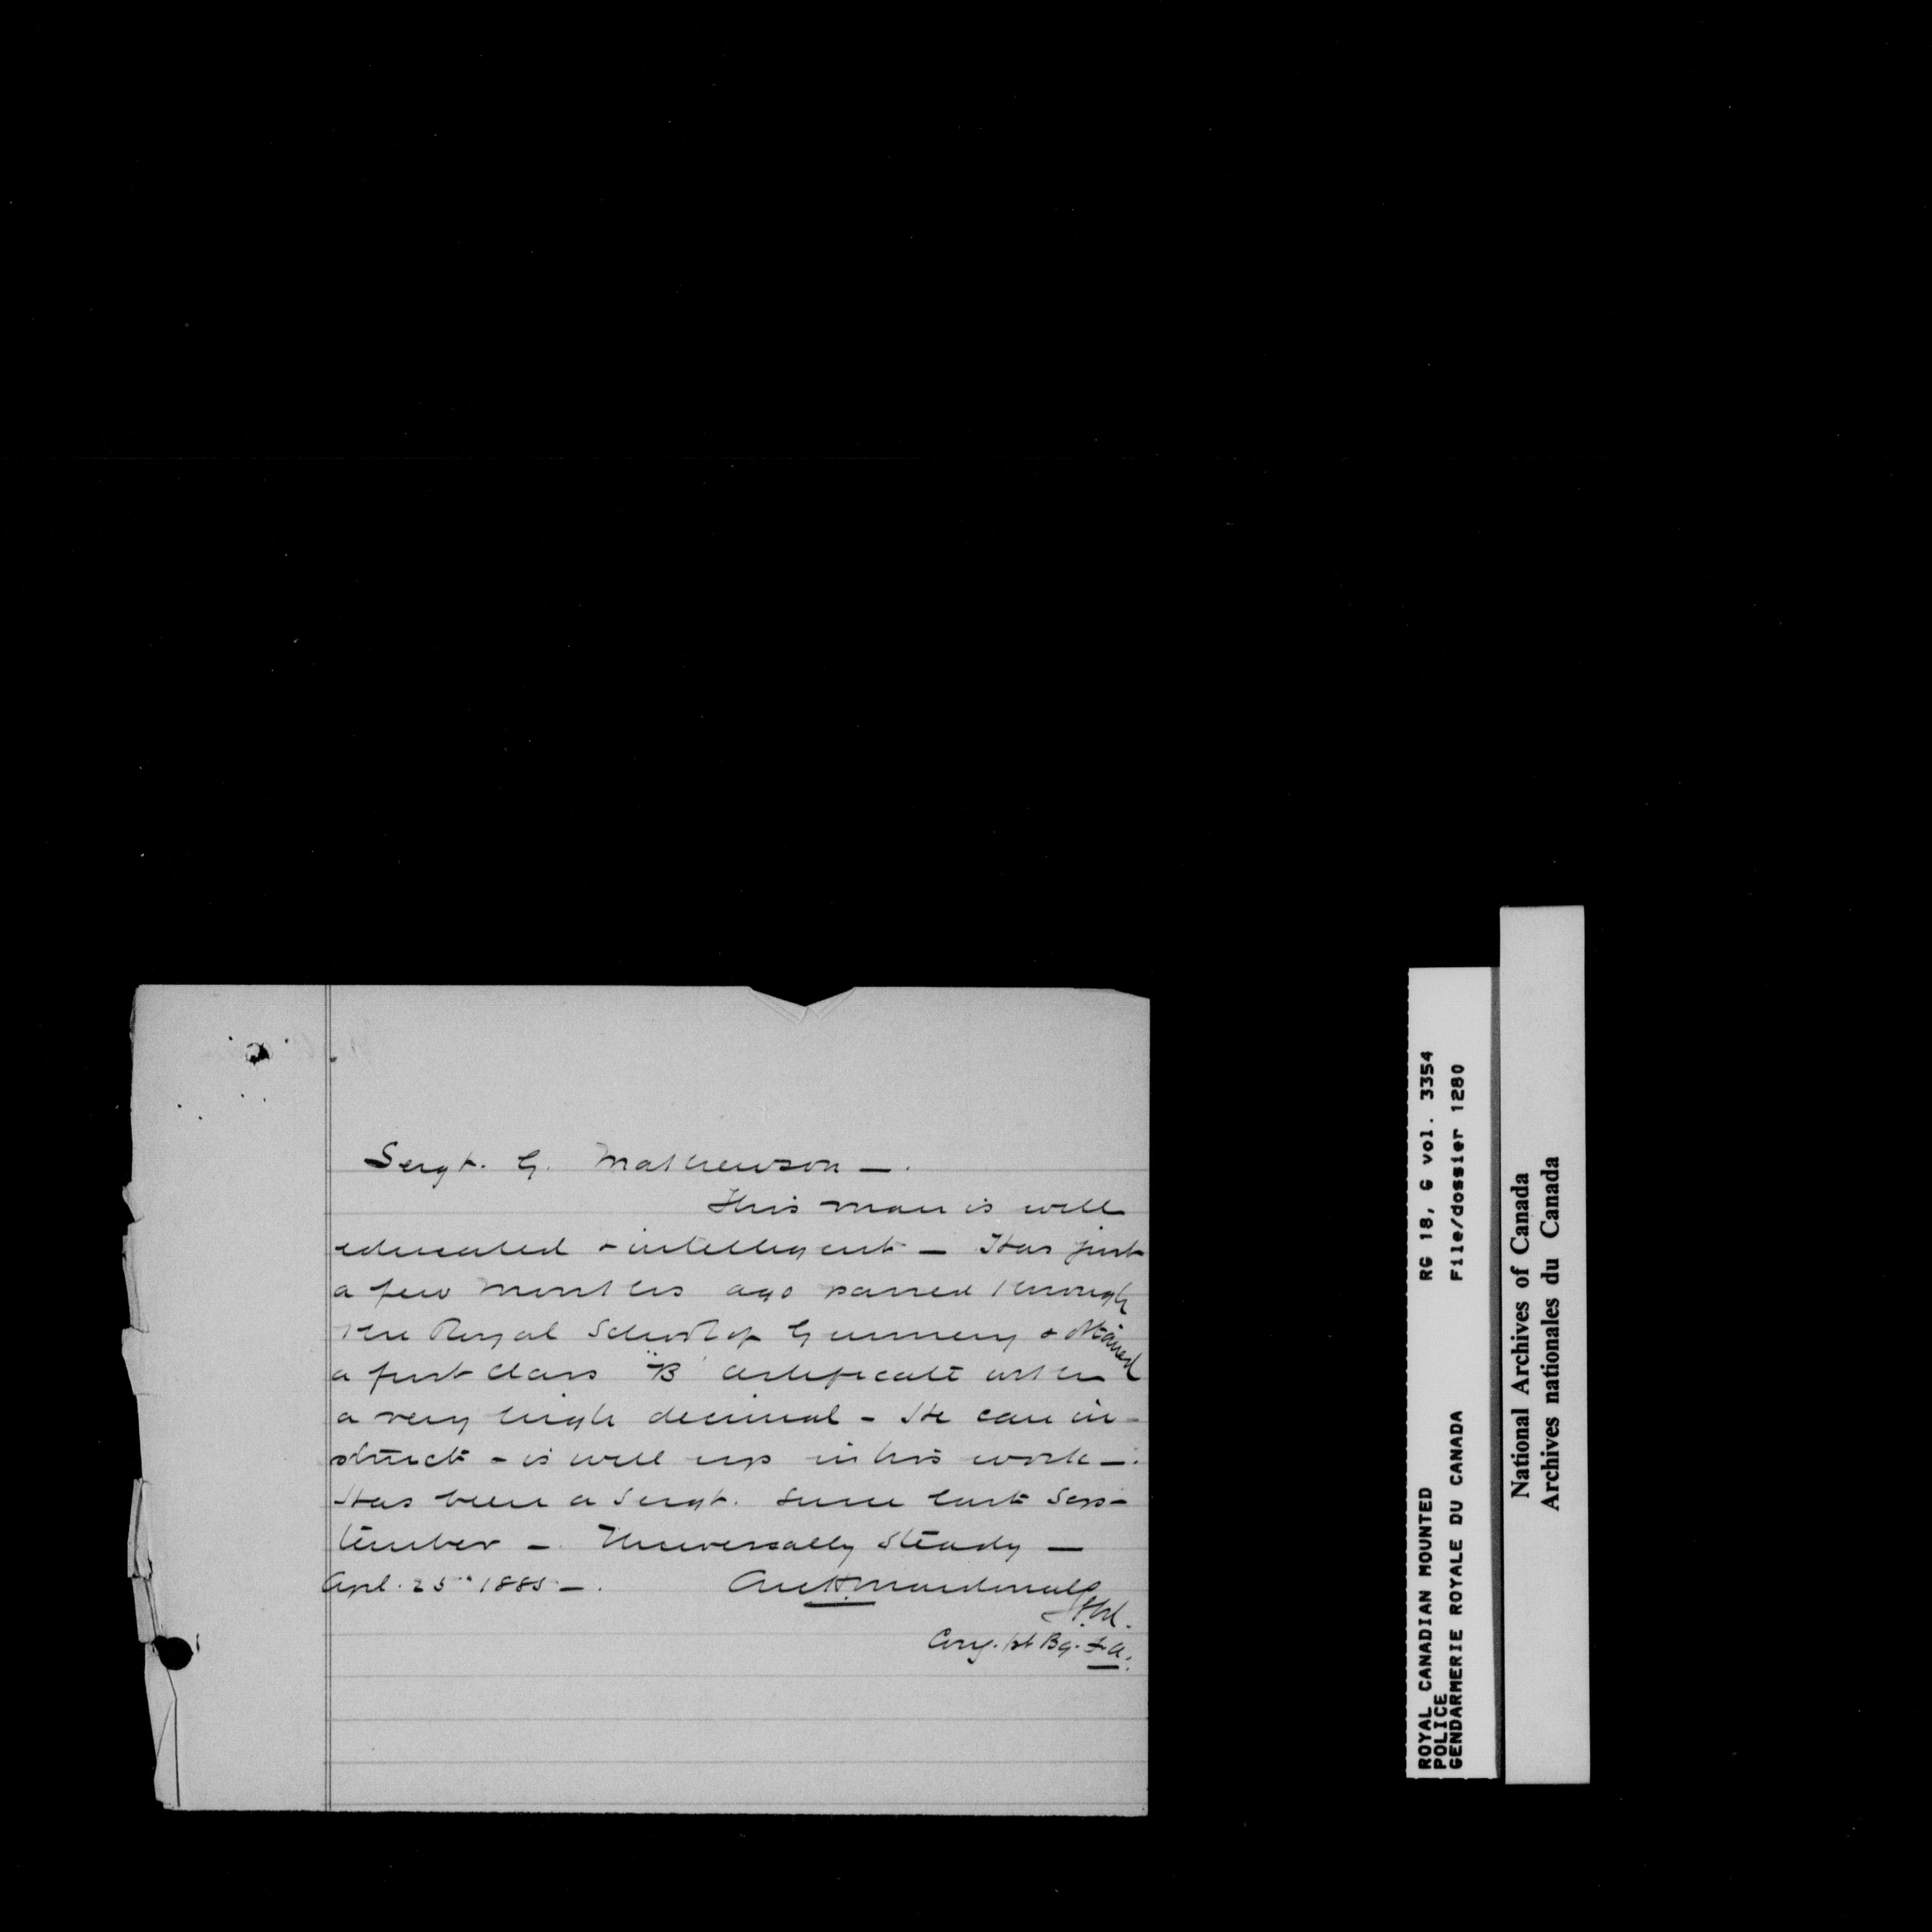 Sergt. G. Mathewson —.
This man is well
educated & intelligent — Has just
a few months ago passed through
the Royal School of Gunnery & obtained
a first class "B" certificate with
a very high decimal - He can in-
struct - is well up in his work —.
Has been a Sergt. since last Sep-
tember — Universally steady —
Apl. 25th 1885 —.
Macdonald
Comg. 1st Bg. F.A.
ROYAL CANADIAN MOUNTED
POLICE
GENDARMERIE ROYALE DU CANADA
RG 18, G vol. 3354
File/dossier 1280
National Archives of Canada
Archives nationales du Canada